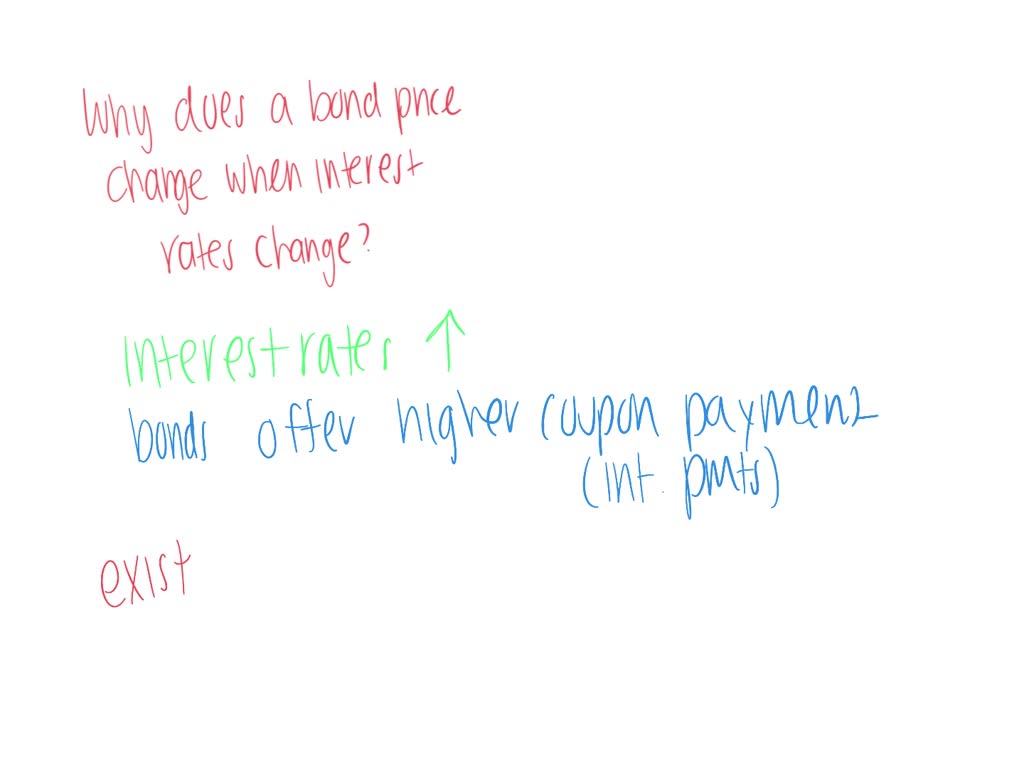 Why does a bond price
change when interest
rates change?
Interest rates ↑
bonds offer higher coupon payments
(int. pmts)
exist